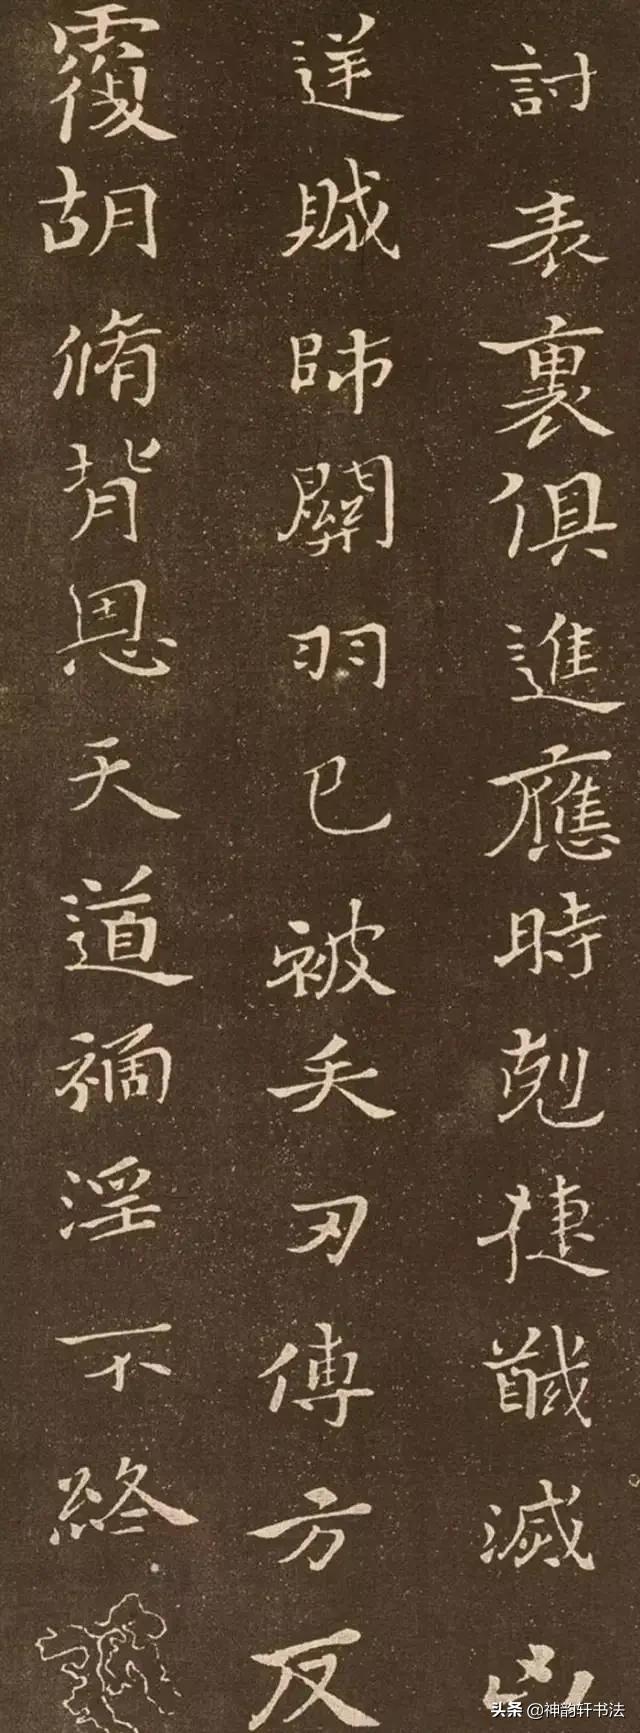 討表裏俱進應時剋捷馘滅凶
逆賊帥關羽已被矢刃傅方反
覆胡脩背恩天道禍淫不終
头条 @神韵轩书法